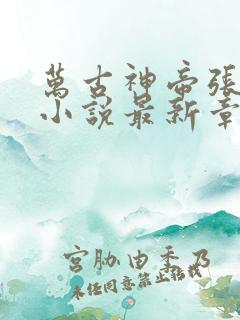 萬古神帝張
小說最新章
宮胁由季乃
未任同意禁止转载